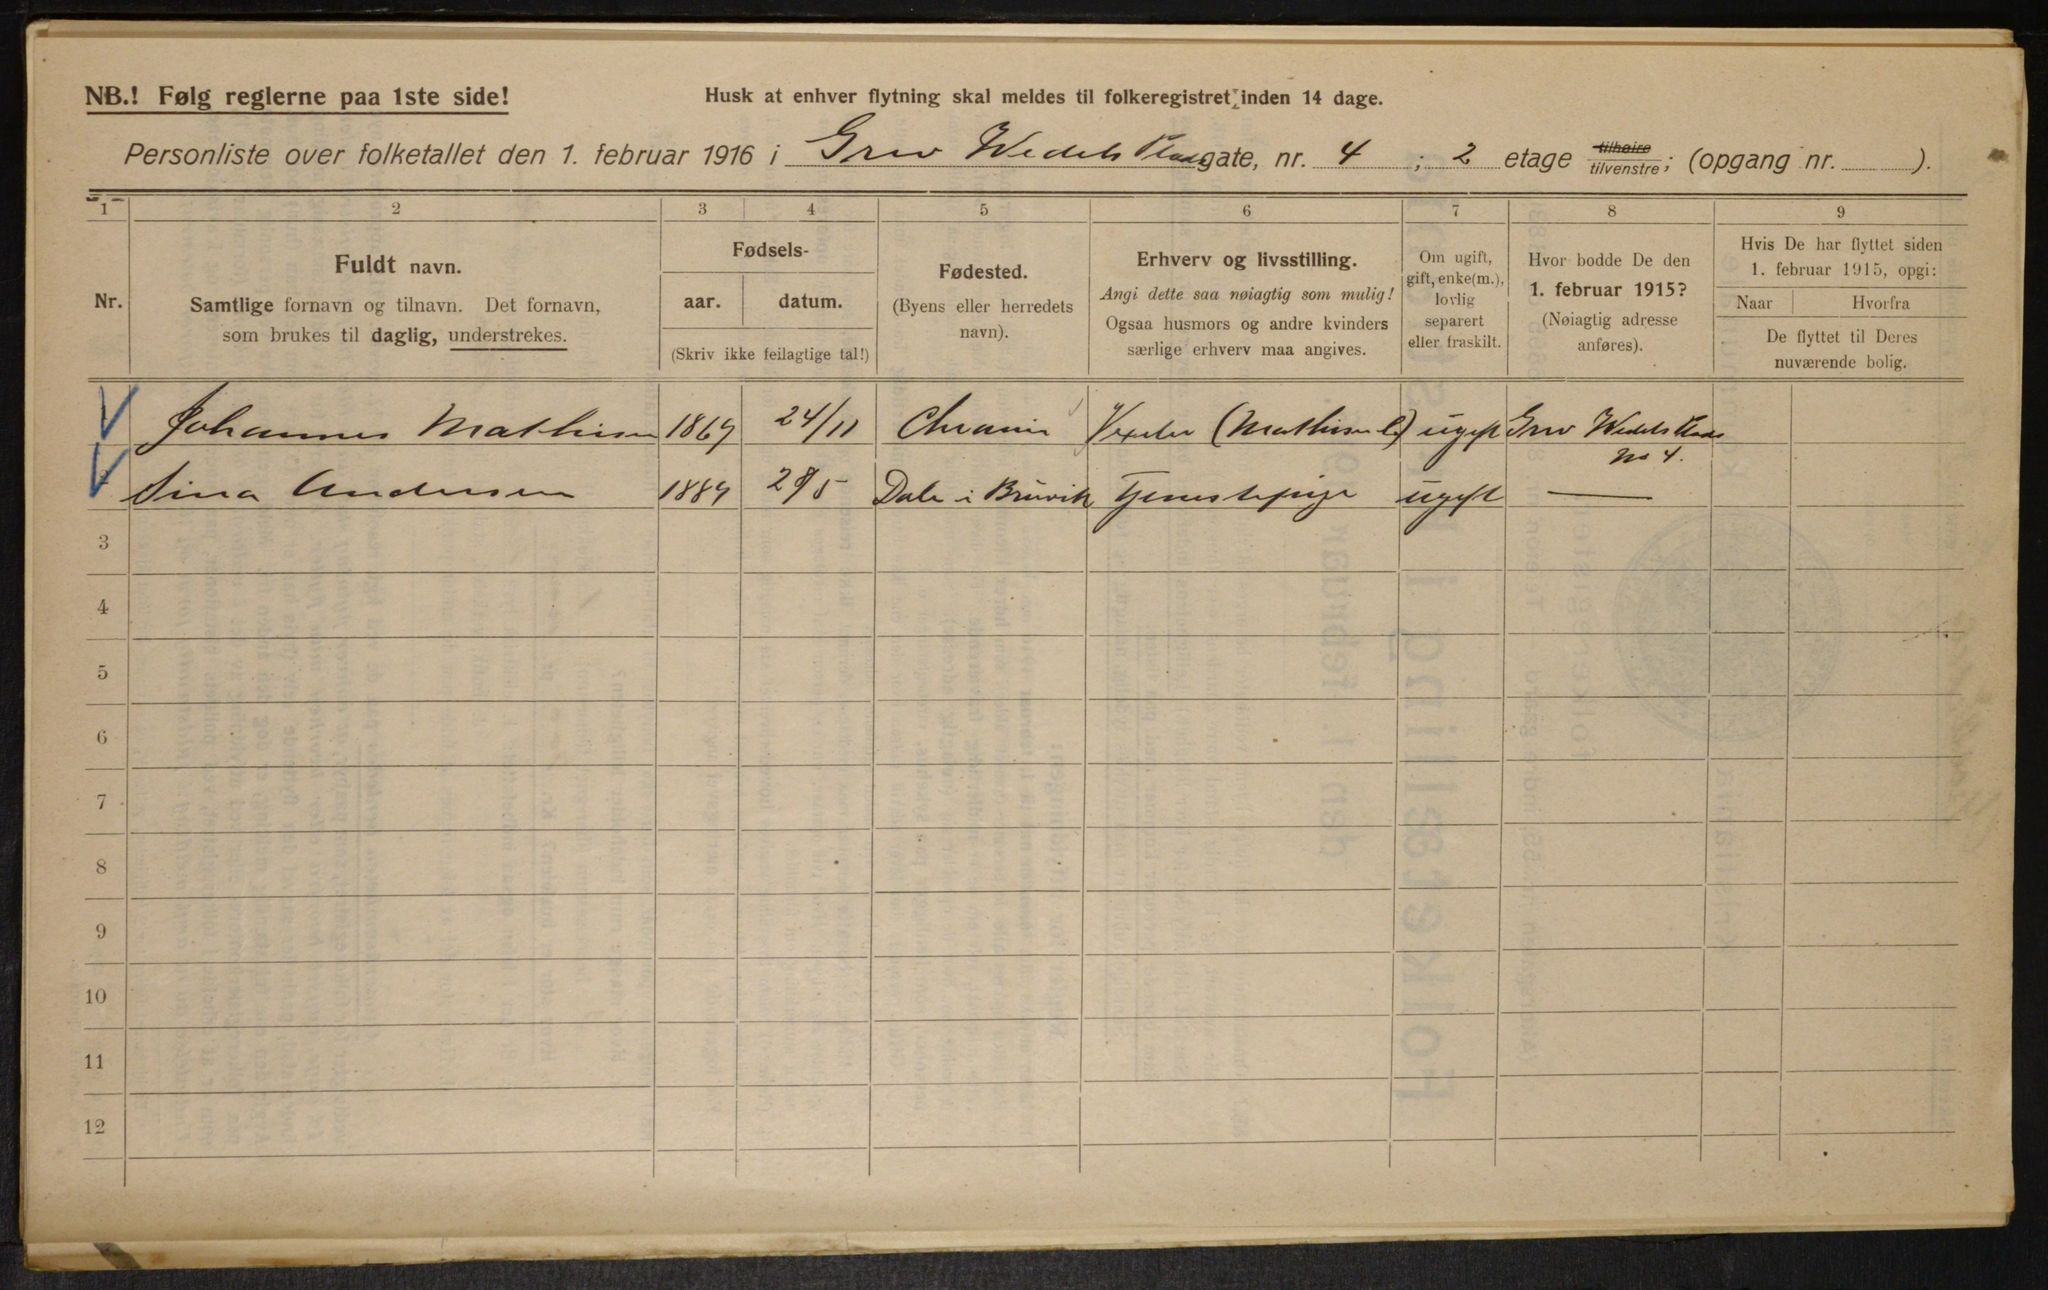 NB.! Følg reglerne paa 1ste side!
Husk at enhver flytning skal meldes til folkeregistret inden 14 dage.
Personliste over folketallet den 1. februar 1916 i Grev Wedels Plads gate, nr. 4 ; 2 etage tilhøire tilvenstre; (opgang nr. ).
1 2 3 4 5 6 7 8 9
Nr.
Fuldt navn.
Samtlige fornavn og tilnavn. Det fornavn,
som brukes til daglig, understrekes.
Fødsels-
aar. datum.
(Skriv ikke feilagtige tal!)
Fødested.
(Byens eller herredets
navn).
Erhverv og livsstilling.
Angi dette saa nøiagtig som mulig!
Ogsaa husmors og andre kvinders
særlige erhverv maa angives.
Om ugift,
gift, enke(m.),
lovlig
separert
eller fraskilt.
Hvor bodde De den
1. februar 1915?
(Nøiagtig adresse
anføres).
Hvis De har flyttet siden
1. februar 1915, opgi:
Naar Hvorfra
De flyttet til Deres
nuværende bolig.
Johannes Mathisen 1869 24/11 Chrania (Mathisen ugift Grev Wedels Plads
No 4.
Sina Andersen 1889 Dale i Bruvik Tjenestepige ugift —
3
4
5
6
7
8
9
10
11
12